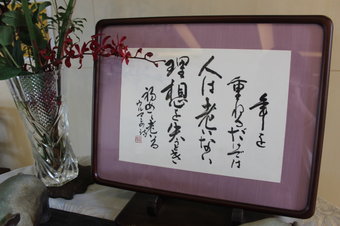 年を
重ねただけでは
人は老いない
理想を失うとき
初めて老いる